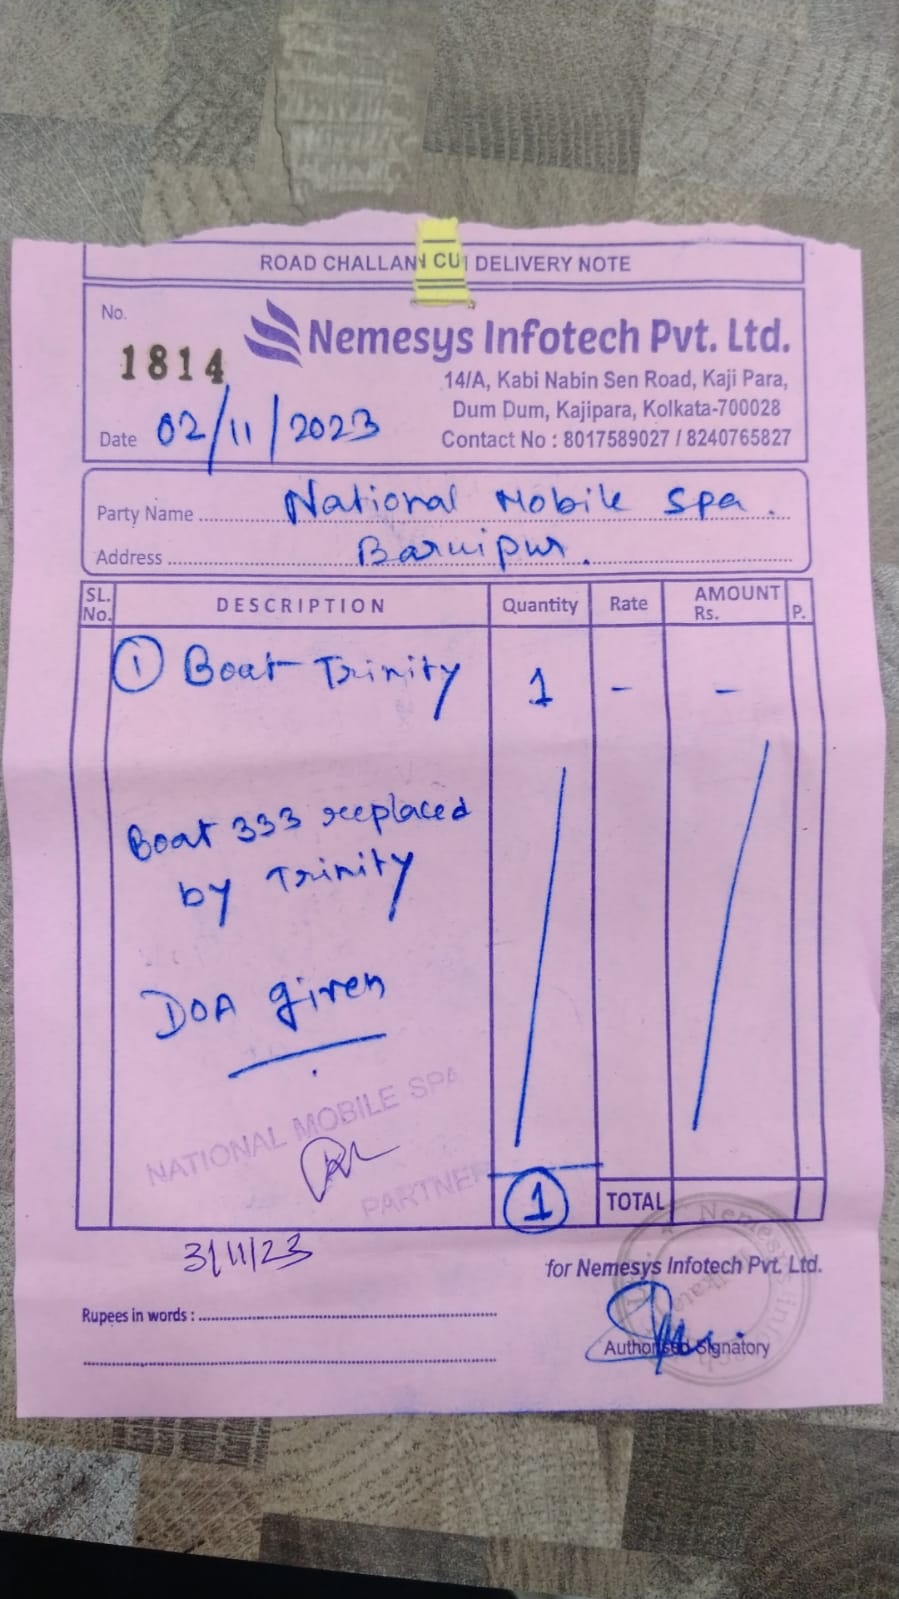 ROAD CHALLAN CU DELIVERY NOTE
No.
1814
Nemesys Infotech Pvt. Ltd.
14/A, Kabi Nabin Sen Road, Kaji Para,
Dum Dum, Kajipara, Kolkata-700028
Contact No : 8017589027 / 8240765827
Date 02/11/2023
Party Name National Mobile Spa.
Address Baruipur.
SL. No. DESCRIPTION Quantity Rate AMOUNT Rs. P.
① Boat Trinity 1 - -
Boat 333 replaced
by Trinity
DOA given
NATIONAL MOBILE SPA
PARTNER
1 TOTAL
3/11/23
for Nemesys Infotech Pvt. Ltd.
Rupees in words :
Authorised Signatory